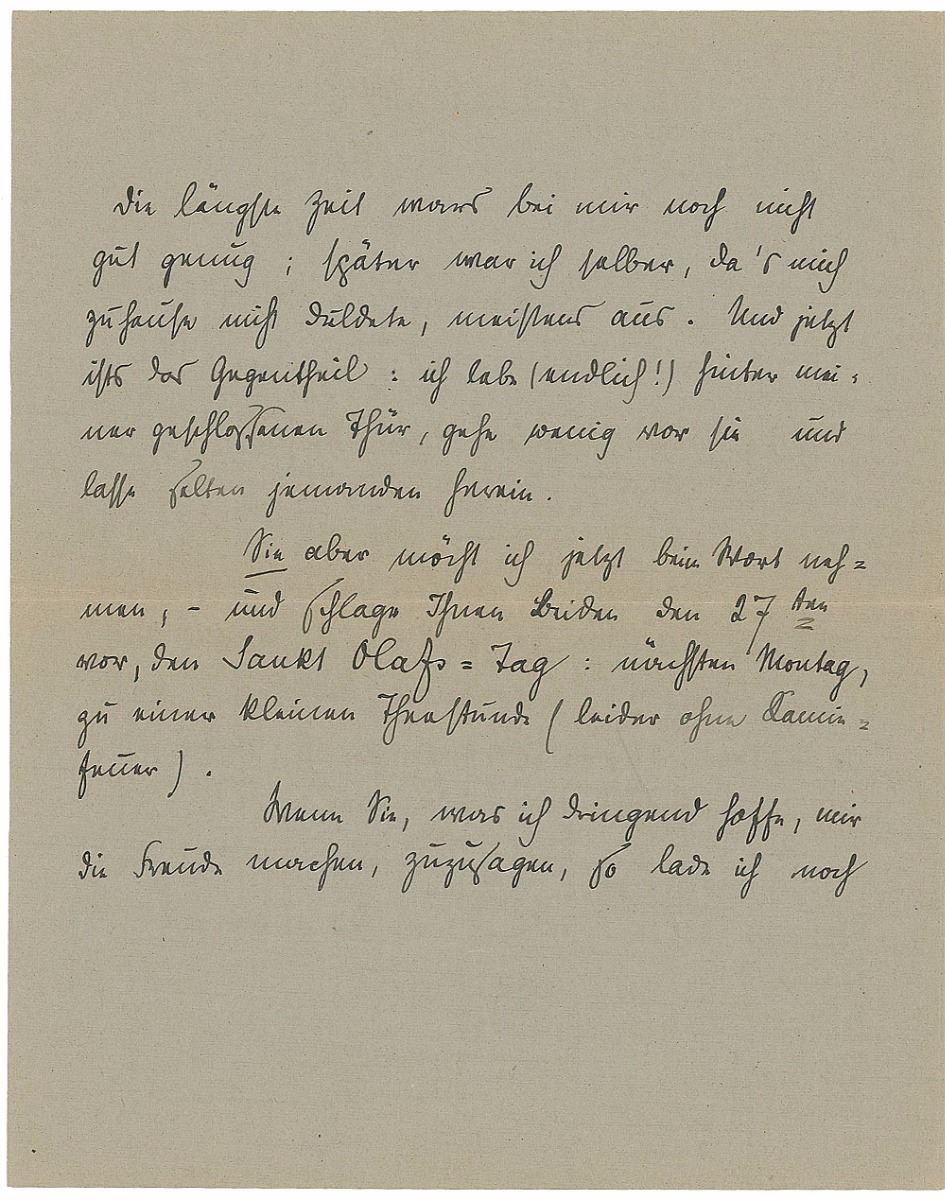 die längste Zeit wars bei mir noch nicht
gut genug ; später war ich selber, da's mich
zuhause nicht duldete, meistens aus. Und jetzt
ists das Gegentheil : ich lebe (endlich!) hinter mei-
ner geschlossenen Thür, gehe wenig vor sie und
lasse selten jemanden herein.
Sie aber möcht ich jetzt beim Wort neh=
men, – und schlage Ihnen Beiden den 27ten
vor, den Sankt Olafs = Tag : nächsten Montag,
zu einer kleinen Theestunde ( leider ohne Kamin=
feuer ) .
Wenn Sie, was ich dringend hoffe, mir
die Freude machen, zuzusagen, so lade ich noch